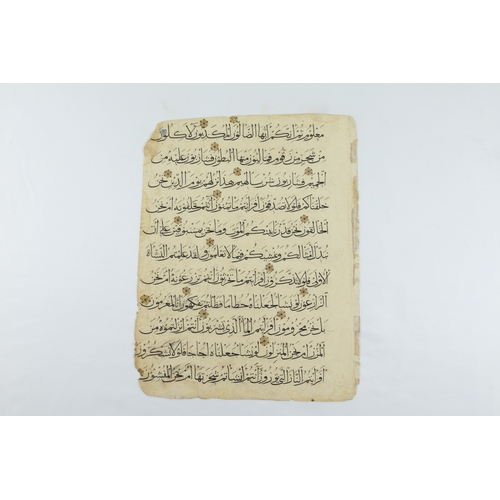 معلوم ثم انكم ايها الضالون المكذبون لاكلون
من شجر من زقوم فمالون منها البطون فشاربون عليه من
الحميم فشاربون شرب الهيم هذا نزلهم يوم الدين نحن
خلقناكم فلولا تصدقون افرايتم ما تمنون اانتم تخلقونه ام نحن
الخالقون نحن قدرنا بينكم الموت وما نحن بمسبوقين على ان
نبدل امثالكم وننشئكم فيما لا تعلمون ولقد علمتم النشاة
الاولى فلولا تذكرون افرايتم ما تحرثون اانتم تزرعونه ام نحن
الزارعون لو نشا لجعلناه حطاما فظلتم تفكهون انا لمغرمون
بل نحن محرومون افرايتم الما الذي تشربون اانتم انزلتموه من
المزن ام نحن المنزلون لو نشا جعلناه اجاجا فلولا تشكرون
افرايتم النار التي تورون اانتم انشاتم شجرتها ام نحن المنشئون